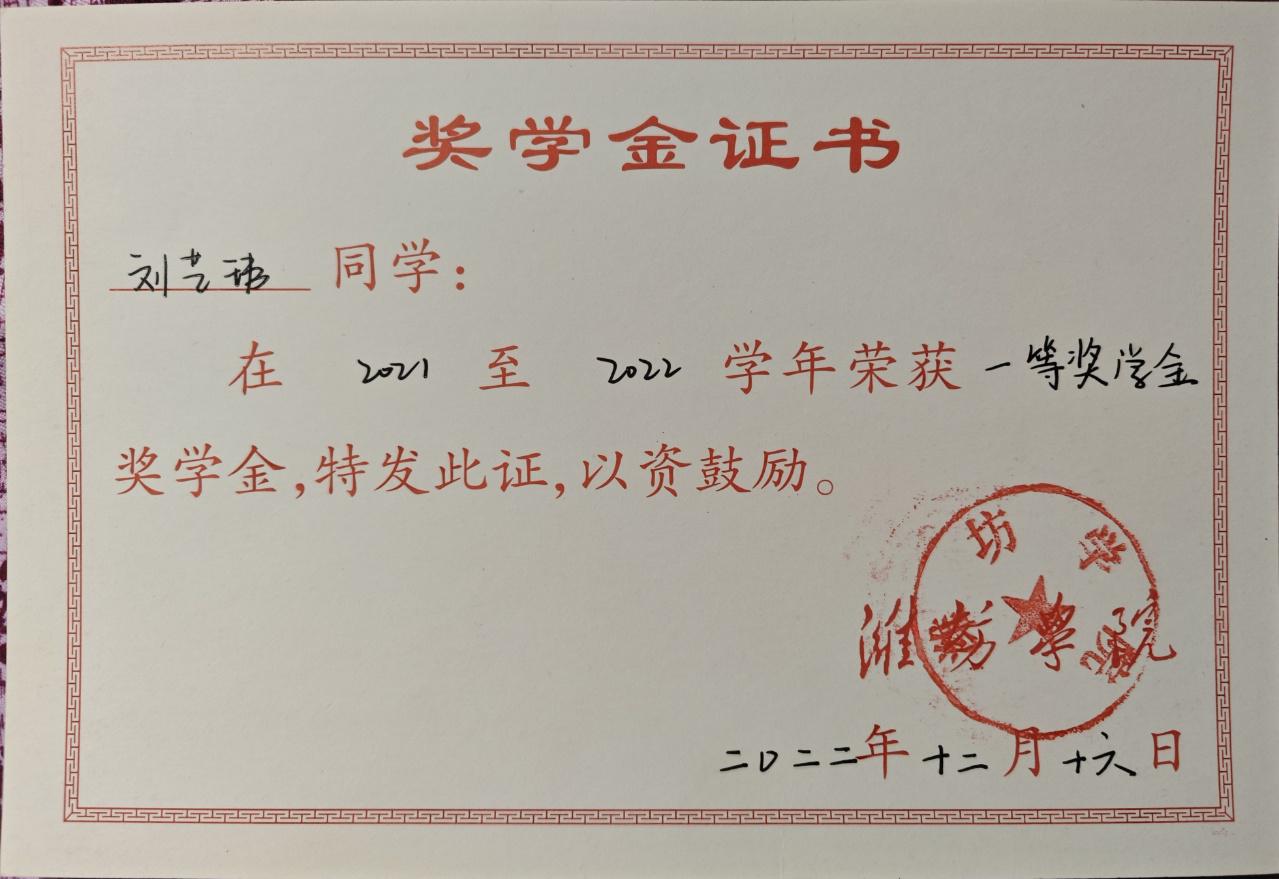 奖学金证书
刘艺玮 同学：
在 2021 至 2022 学年荣获 一等奖学金
奖学金，特发此证，以资鼓励。
坊学院
潍坊学院
二〇二二年十二月十六日